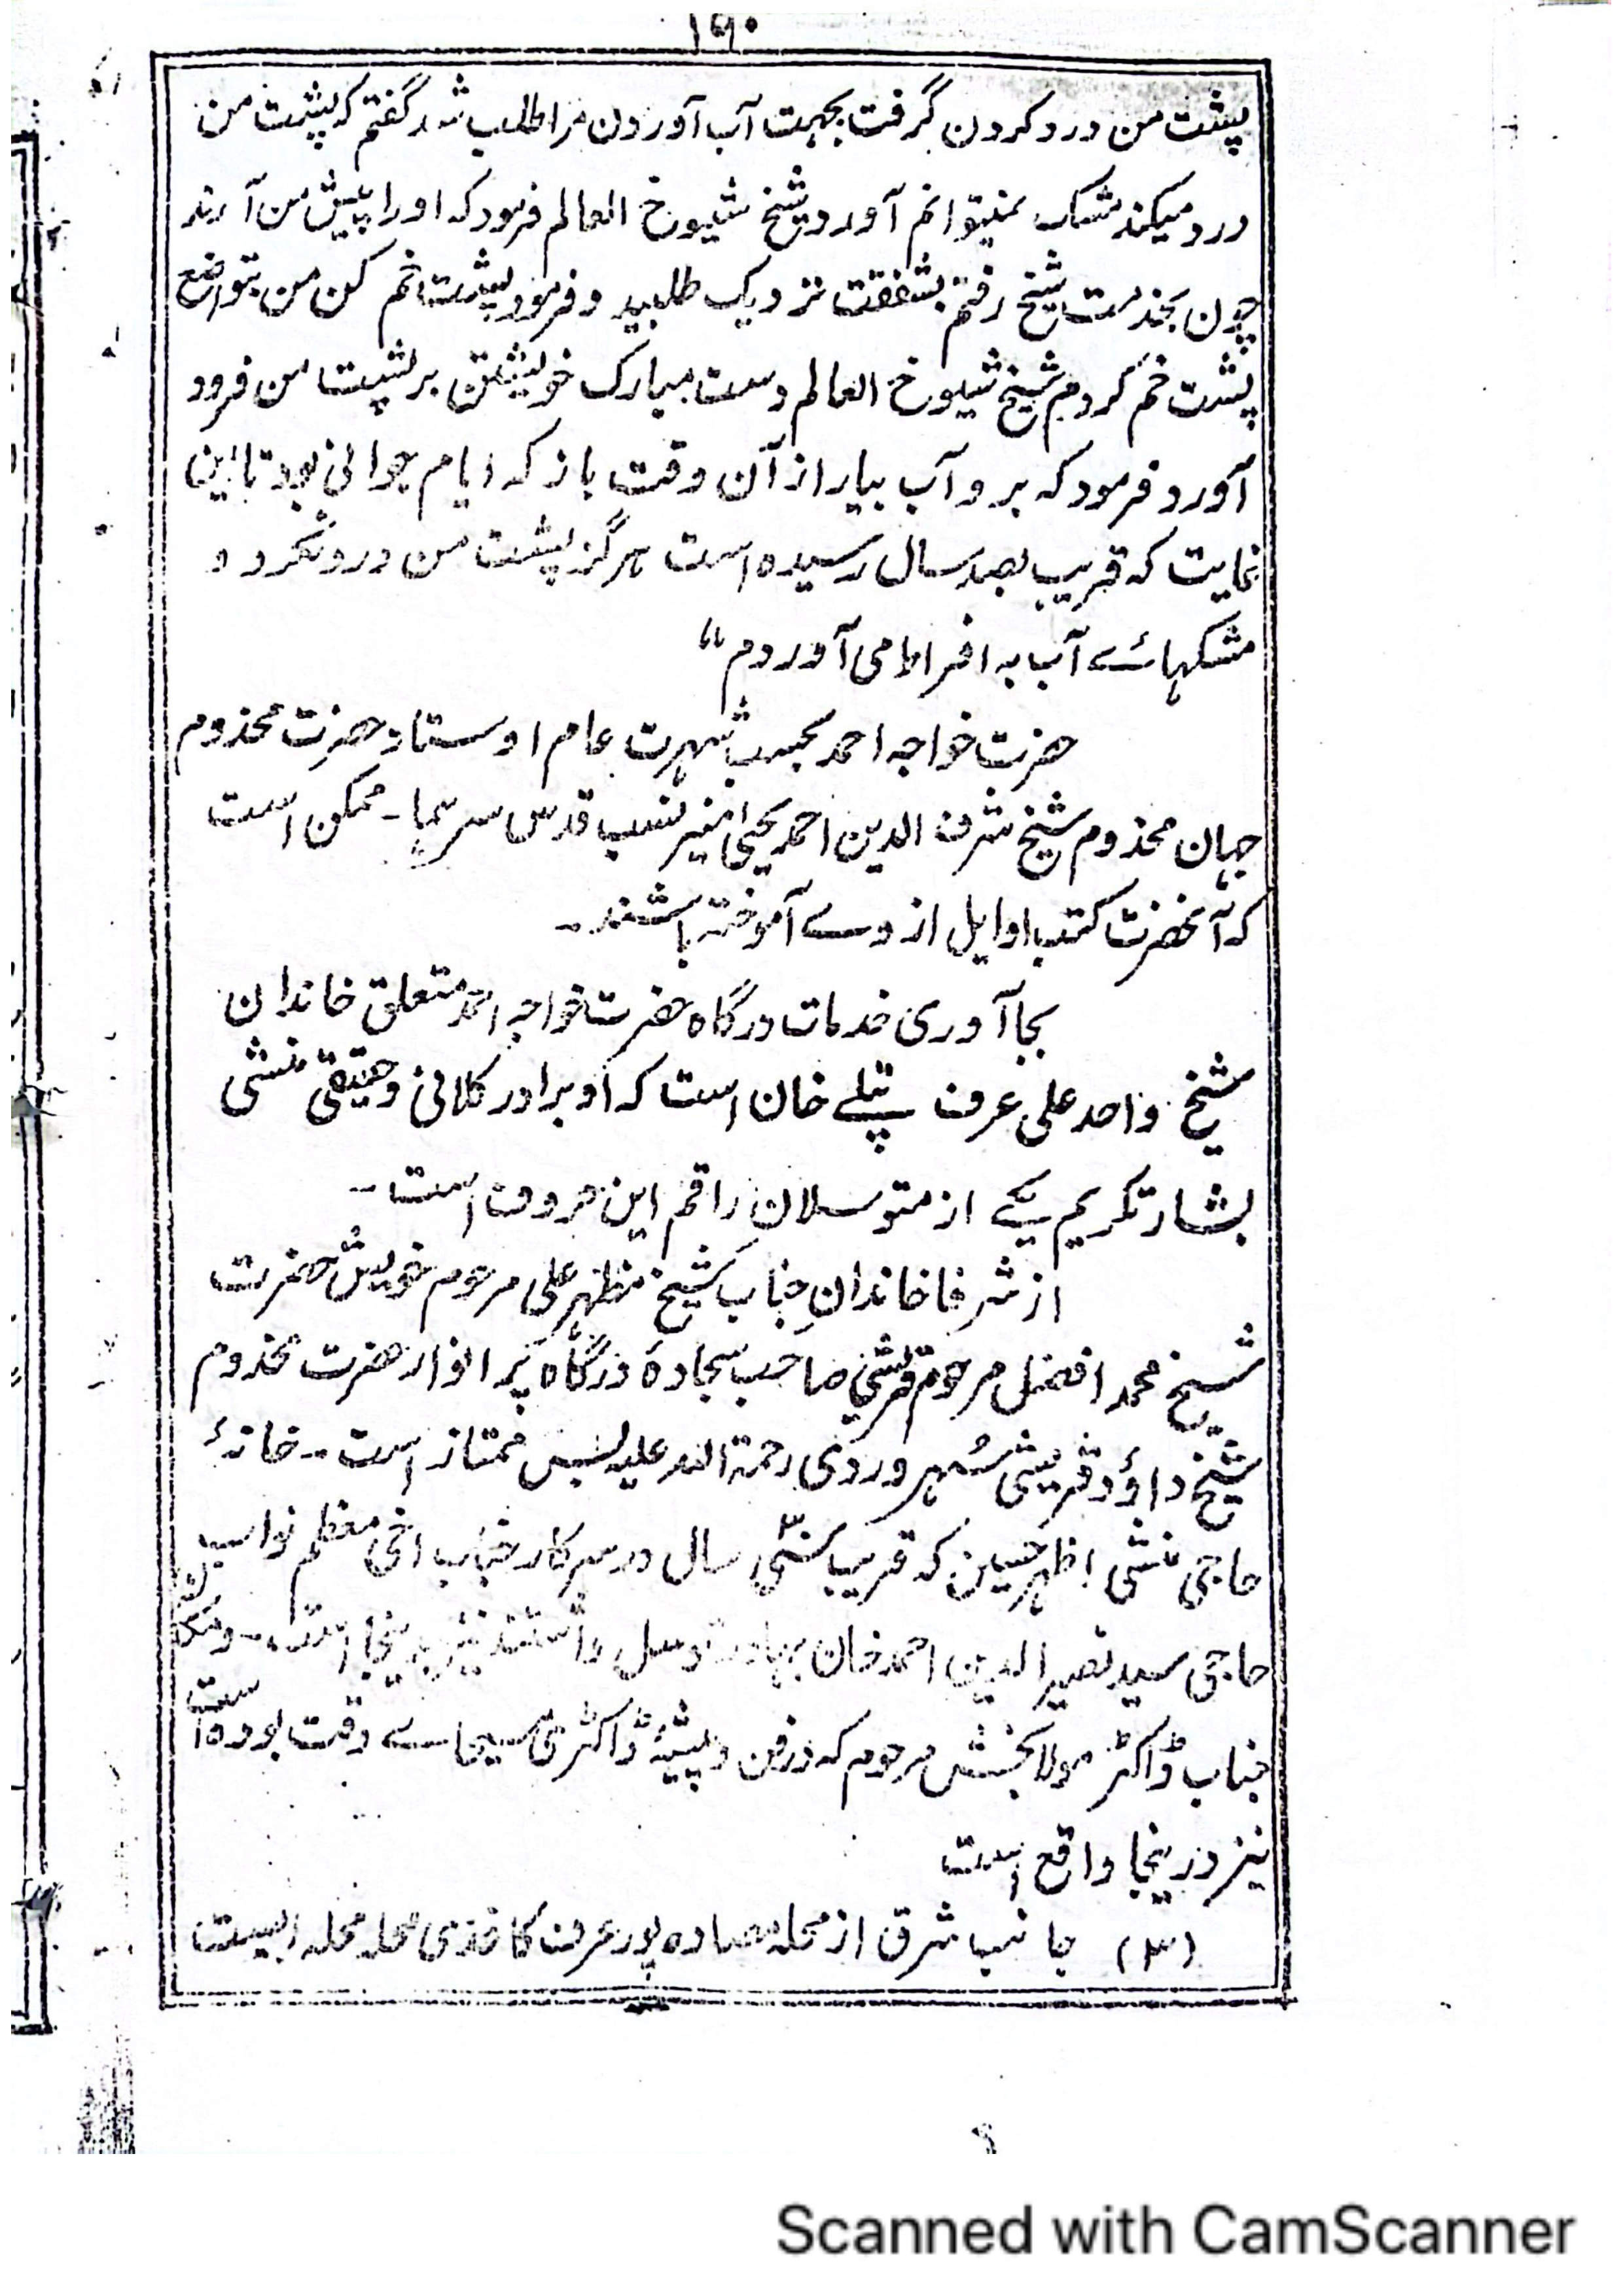 ۱۶۰
پشت من درد کردن گرفت بجہت آب آوردن مرا طلب شد گفتم کہ پشت من
درد میکند مشک نمیتوانم آورد شیخ شیوخ العالم فرمود کہ او را پیش من آرند
چون بخدمت شیخ رفتم بشفقت نزدیک طلبید و فرمود پشت خم کن من بتواضع
پشت خم کردم شیخ شیوخ العالم دست مبارک خویشتن بر پشت من فرود
آورد فرمود کہ برو آب بیار از آن وقت باز کہ ایام جوانی بود تا این
غایت کہ قریب بصد سال رسیدہ است ہرگز پشت من درد نکرد و
مشکہائے آب بہ افراط می آوردم“
حضرت خواجہ احمد بحسب شہرت عام اوستاد حضرت مخدوم
جہان مخدوم شیخ شرف الدین احمد یحییٰ منیر نسب قدس سرہما۔ ممکن است
کہ آنحضرت کتب اوایل از وے آموختہ باشند۔
بجا آوری خدمات درگاہ حضرت خواجہ احمد متعلق خاندان
شیخ واحد علی عرف پتلے خان است کہ او برادر کلانی و حقیقی منشی
بشارت کریم یکے از متوسلان راقم این حروف است۔
از شرفا خاندانِ جناب شیخ مظہر علی مرحوم خویش حضرت
شیخ محمد افضل مرحوم قریشی صاحب سجادۂ درگاہ پر انوار حضرت مخدوم
شیخ داؤد قریشی سُہروردی رحمۃ اللہ علیہ بس ممتاز است۔ خانۂ
حاجی منشی اظہر حسین کہ قریب سی سال در سرکار جناب اخی معظم نواب
حاجی سید نصیر الدین احمد خان بہادر توسل داشتند نیز بدینجا است۔
جناب ڈاکٹر مولا بخش مرحوم کہ در فن و پیشۂ ڈاکٹری مسیحائے وقت بودہ است
نیز درینجا واقع است
(۳) جانب شرق از محلہ پور عرف کاغذی محلہ محلہ ایست
Scanned with CamScanner